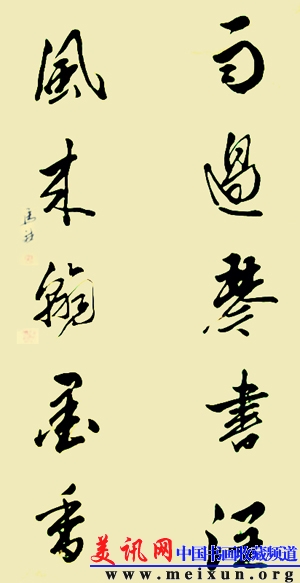 雨過琴書潤
風來翰墨香
美讯网 中国书画收藏频道
www.meixun.org